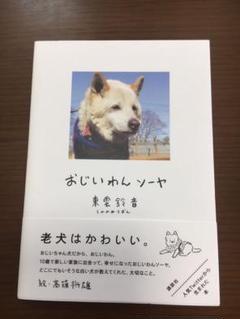 おじいわん ソーヤ
東雲鈴音
しののめりずむ
老犬はかわいい。
おじいちゃん犬だから、おじいわん。
10歳で新しい家族に出会って、幸せになったおじいわんソーヤ。
どこにでもいそうな白い犬が教えてくれた、大切なこと。
絵・高藤将雄
講談社
人気Twitterから
生まれた
本